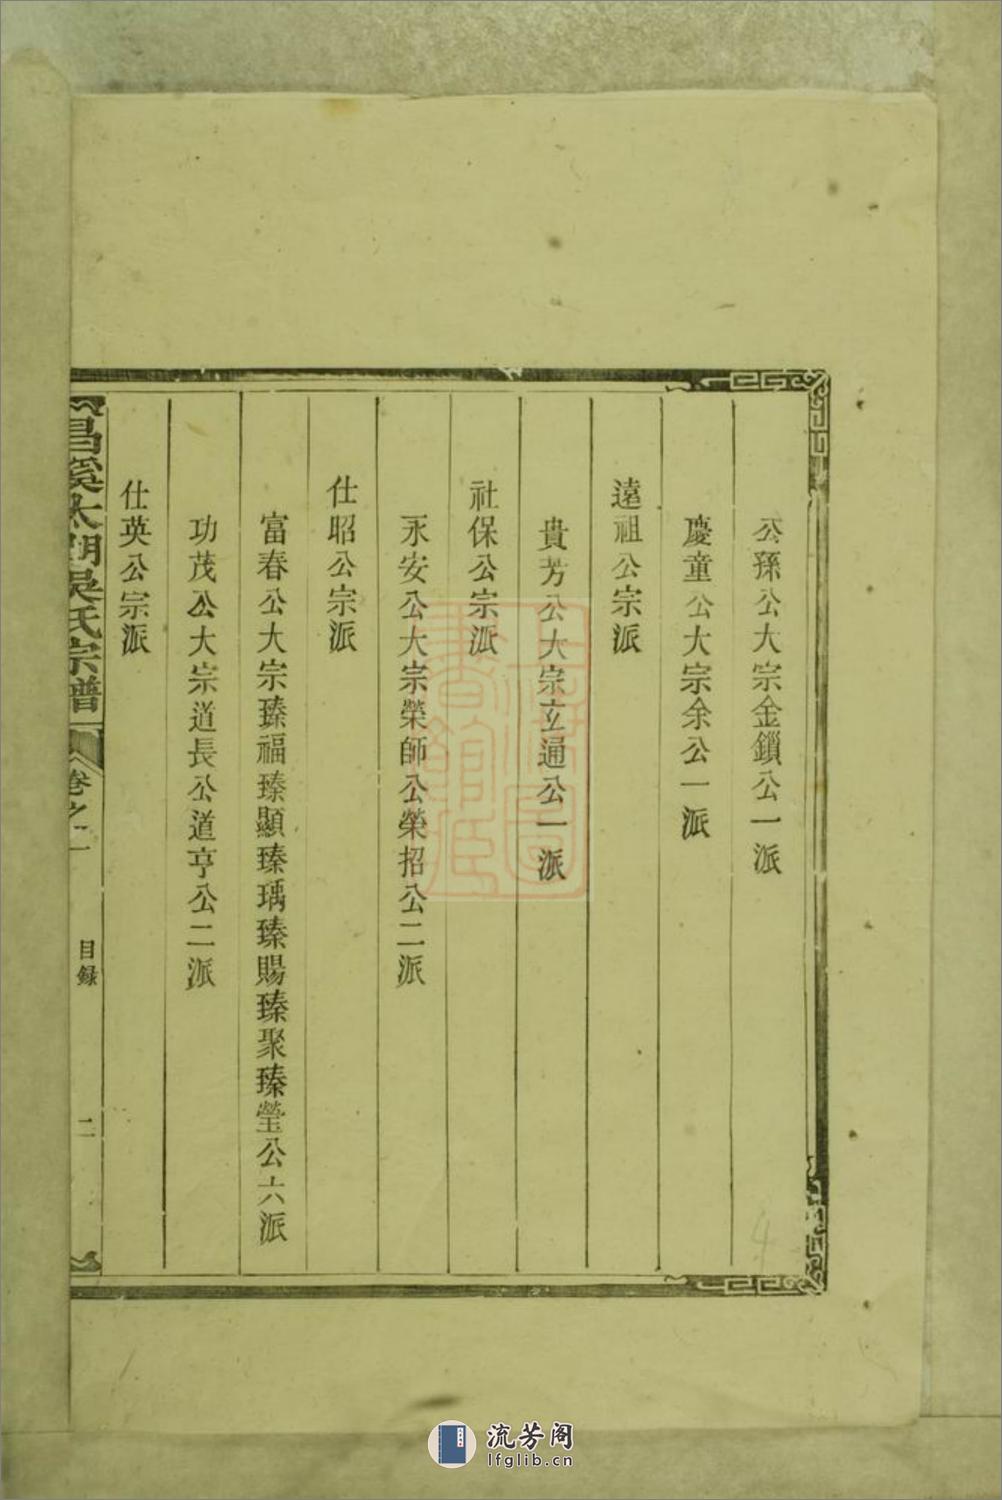 公孫公大宗金鎖公一派
慶童公大宗余公一派
遠祖公宗派
貴芳公大宗立通公一派
社保公宗派
永安公大宗榮師公榮招公二派
仕昭公宗派
富春公大宗瑧福瑧顯瑧瑀瑧賜瑧聚瑧瑩公六派
功茂公大宗道長公道亨公二派
仕英公宗派
昌溪太湖吳氏宗譜
卷之二
目録
二
4
流芳阁
lfglib.cn